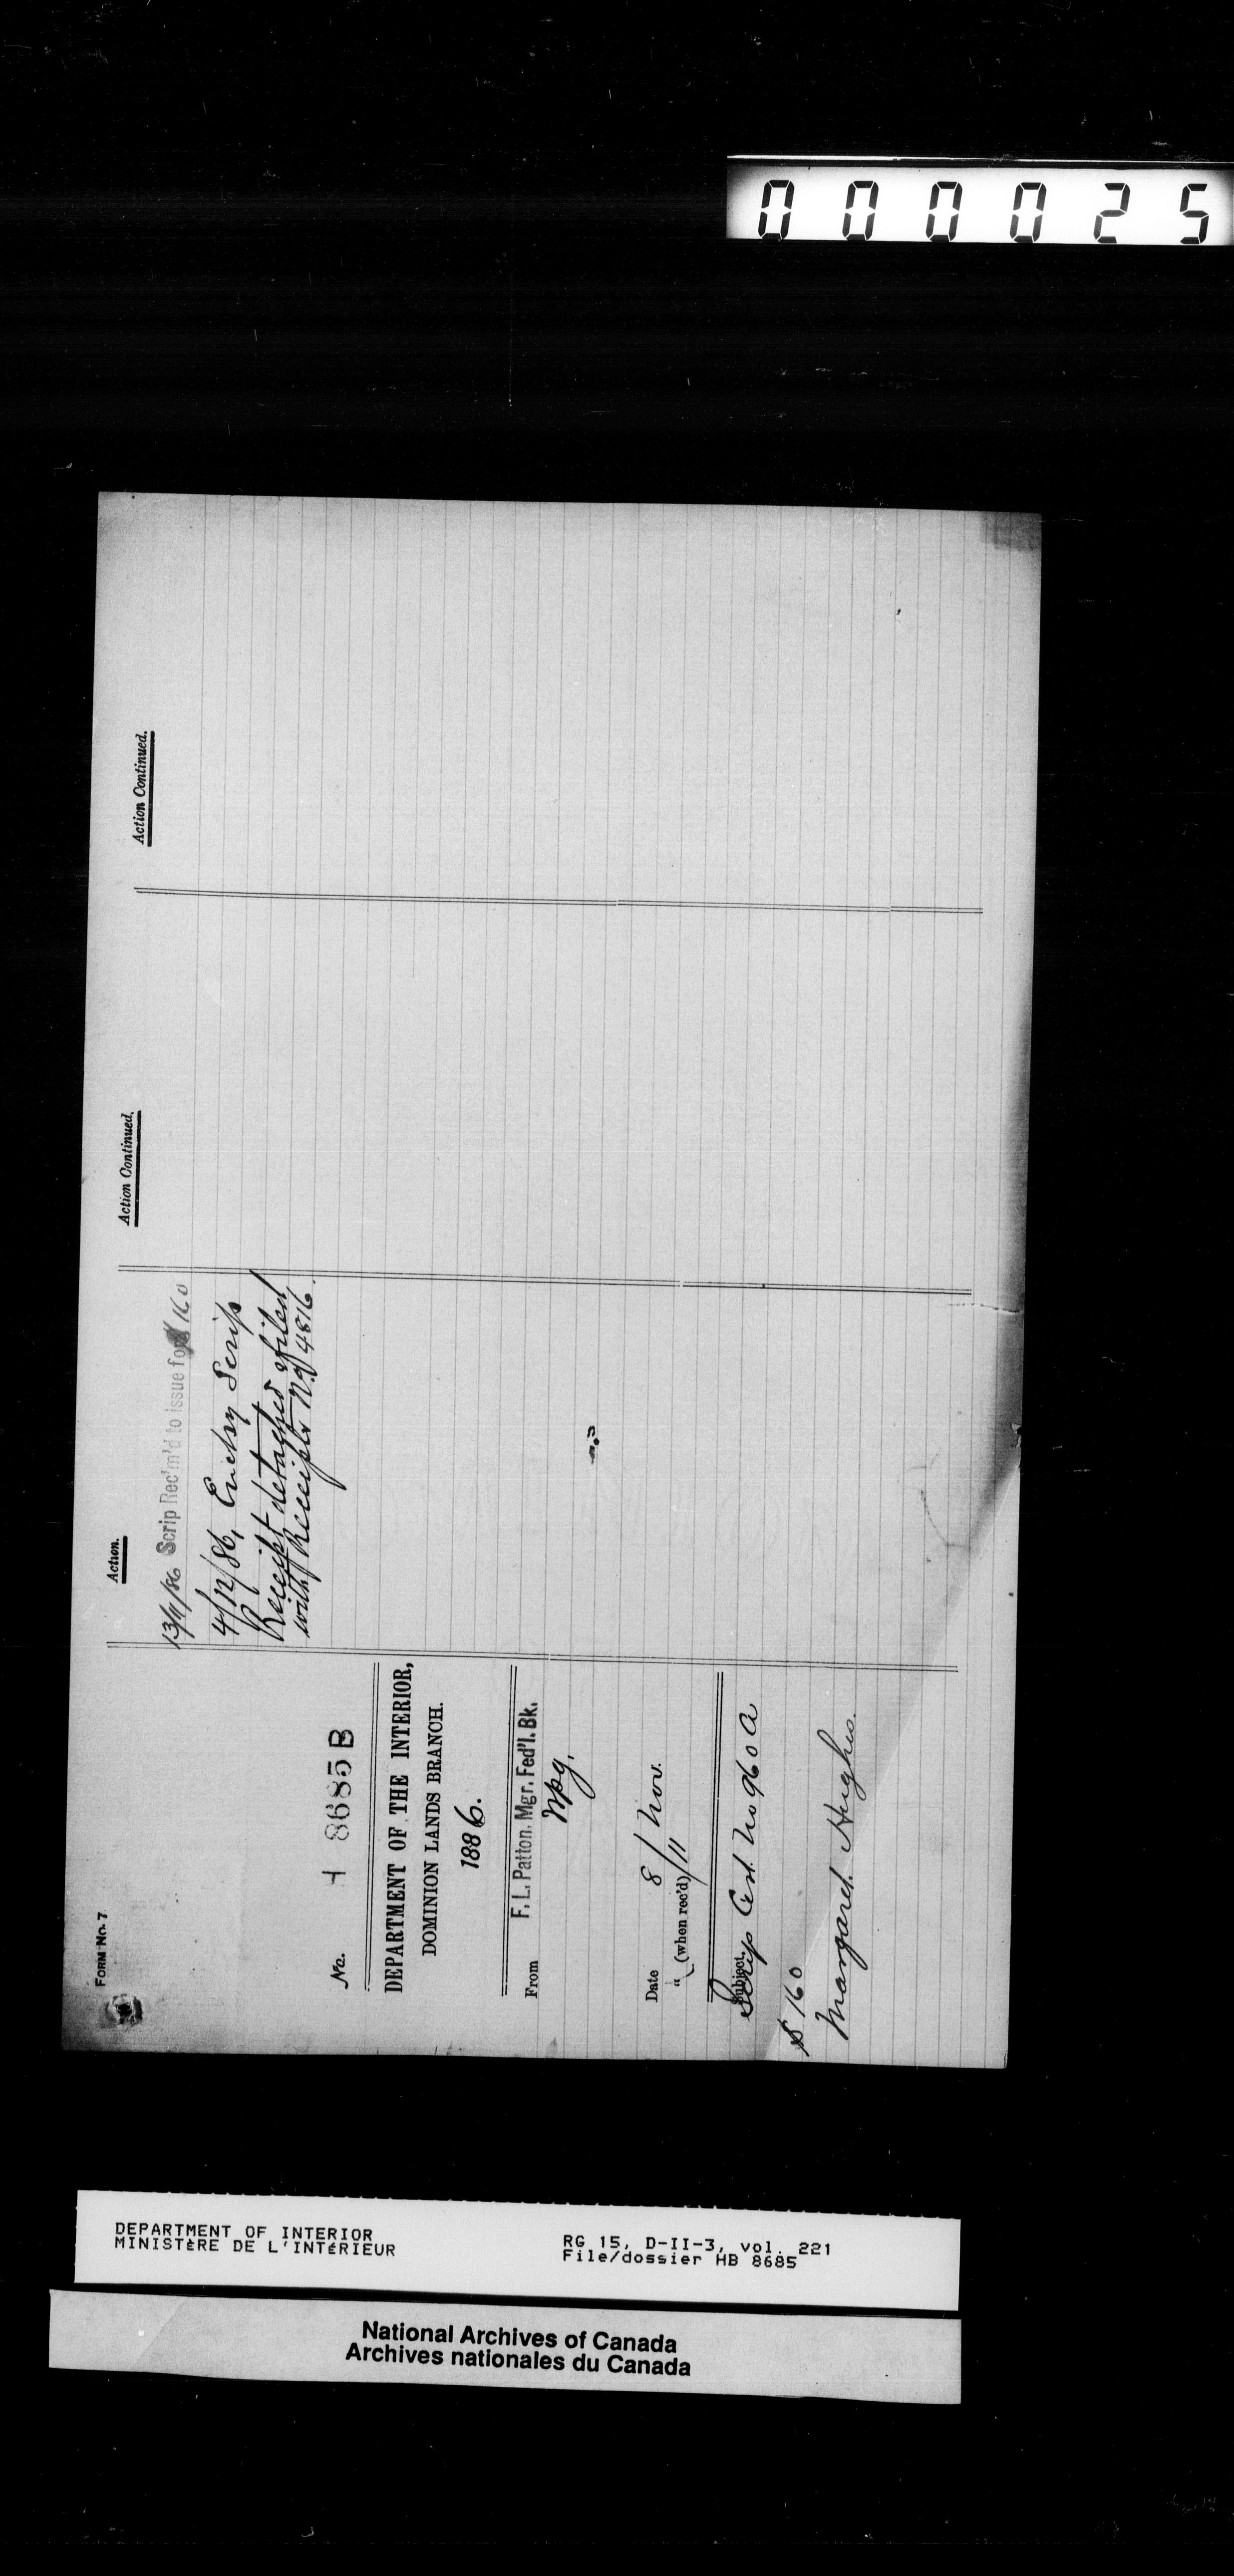 000025
FORM No. 7
No. H 8685 B
DEPARTMENT OF THE INTERIOR,
DOMINION LANDS BRANCH.
1886.
From F. L. Patton. Mgr. Fed'l. Bk.
Wpg.
Date 8/ Nov.
" (when rec'd) / 11
Subject.
Scrip Cert. No 960 A
$ 160
Margaret Hughes.
Action.
13/11/86 Scrip Rec'm'd to issue for $ 160
4/12/86, Enclsg Scrip
Receipt detached & filed
with Receipts No 4816.
Action Continued.
Action Continued.
DEPARTMENT OF INTERIOR
MINISTÈRE DE L'INTÉRIEUR
RG 15, D-II-3, vol. 221
File/dossier HB 8685
National Archives of Canada
Archives nationales du Canada